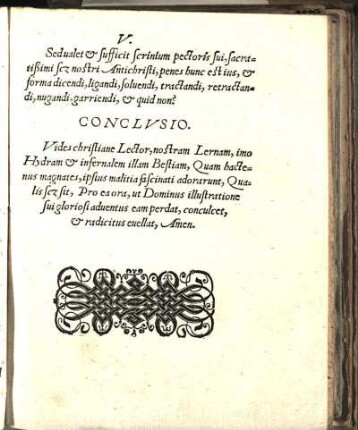 V.
Sed ualet & sufficit scrinium pectoris sui-sacra-
tissimi scz nostri Antichristi, penes hunc est ius, &
forma dicendi, ligandi, soluendi, tractandi, retractan-
di, nugandi-garriendi, & quid non?
CONCLVSIO.
Vides christiane Lector, nostram Lernam, imo
Hydram & infernalem illam Bestiam, Quam hacte-
nus magnates, ipsius malitia fascinati adorarunt, Qua-
lis scz sit, Pro ea ora, ut Dominus illustratione
sui gloriosi aduentus eam perdat, conculcet,
& radicitus euellat, Amen.